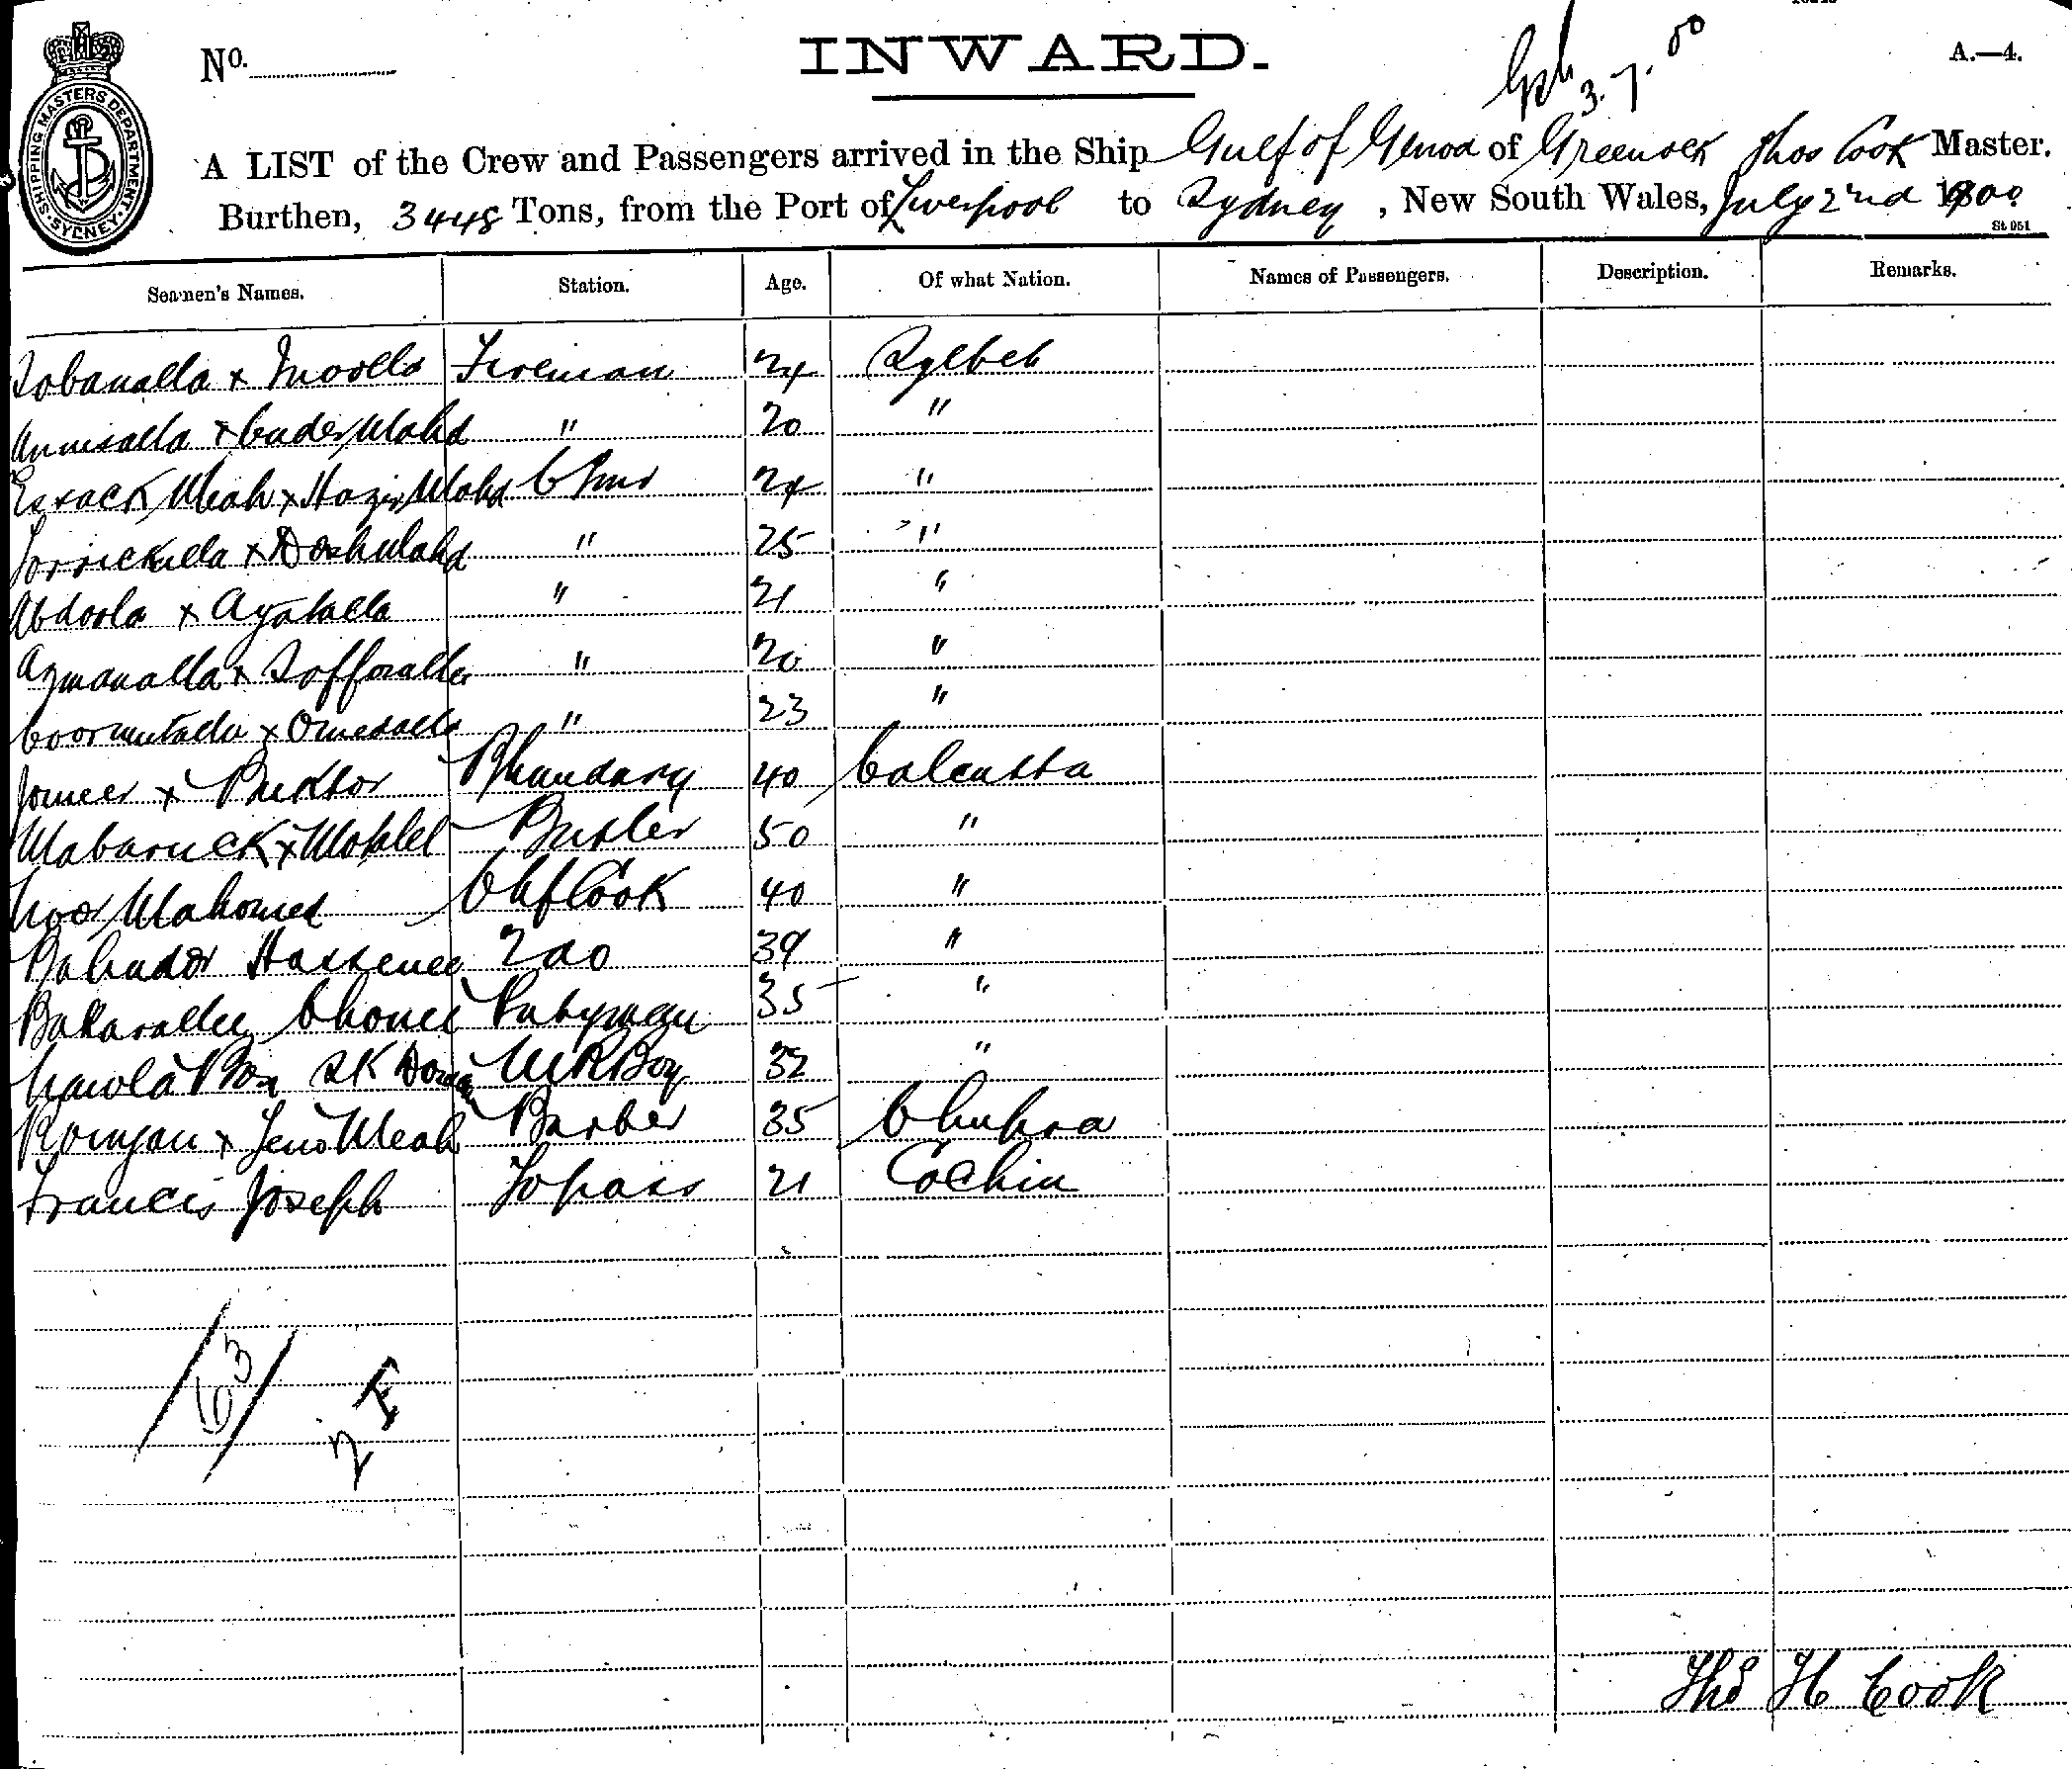 No.
INWARD.
3.7.00
A.—4.
SHIPPING MASTERS DEPARTMENT SYDNEY
A LIST of the Crew and Passengers arrived in the Ship Gulf of Genoa of Greenock Thos Cook Master.
Burthen, 3448 Tons, from the Port of Liverpool to Sydney, New South Wales, July 2nd 1900
St 951
Seamen's Names. Station. Age. Of what Nation. Names of Passengers. Description. Remarks.
Sobanalla x Moolla Fireman 24 Sylhet
x Cader Mahd " 20 "
Essack Meah x Hazir Mahd 24 "
x Mahd " 25 "
Abdoola x Ayatalla " 21 "
Azmanalla x Sofforalla " 20 "
x Omedalla " 23 "
Jomeer x Bhandary 40 Calcutta
Mabaruck x Butler 50 "
Noor Mahomed Ch Cook 40 "
Bahador Hassenee 2 do 39 "
Bakarallee Pantryman 35 "
Box SK M R Boy 32 "
Romjan x Meah Barber 35 Chupra
Francis Joseph Topass 21 Cochin
63
2 F
Thos H Cook